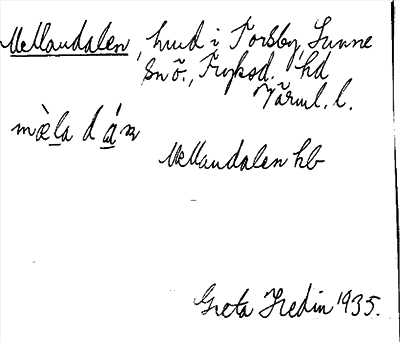 Mellandalen, hmd i Torsby, Sunne
sn ö., Fryksd. hd
Värml. l.
mæla dán
Mellandalen hb
Greta Hedin 1935.